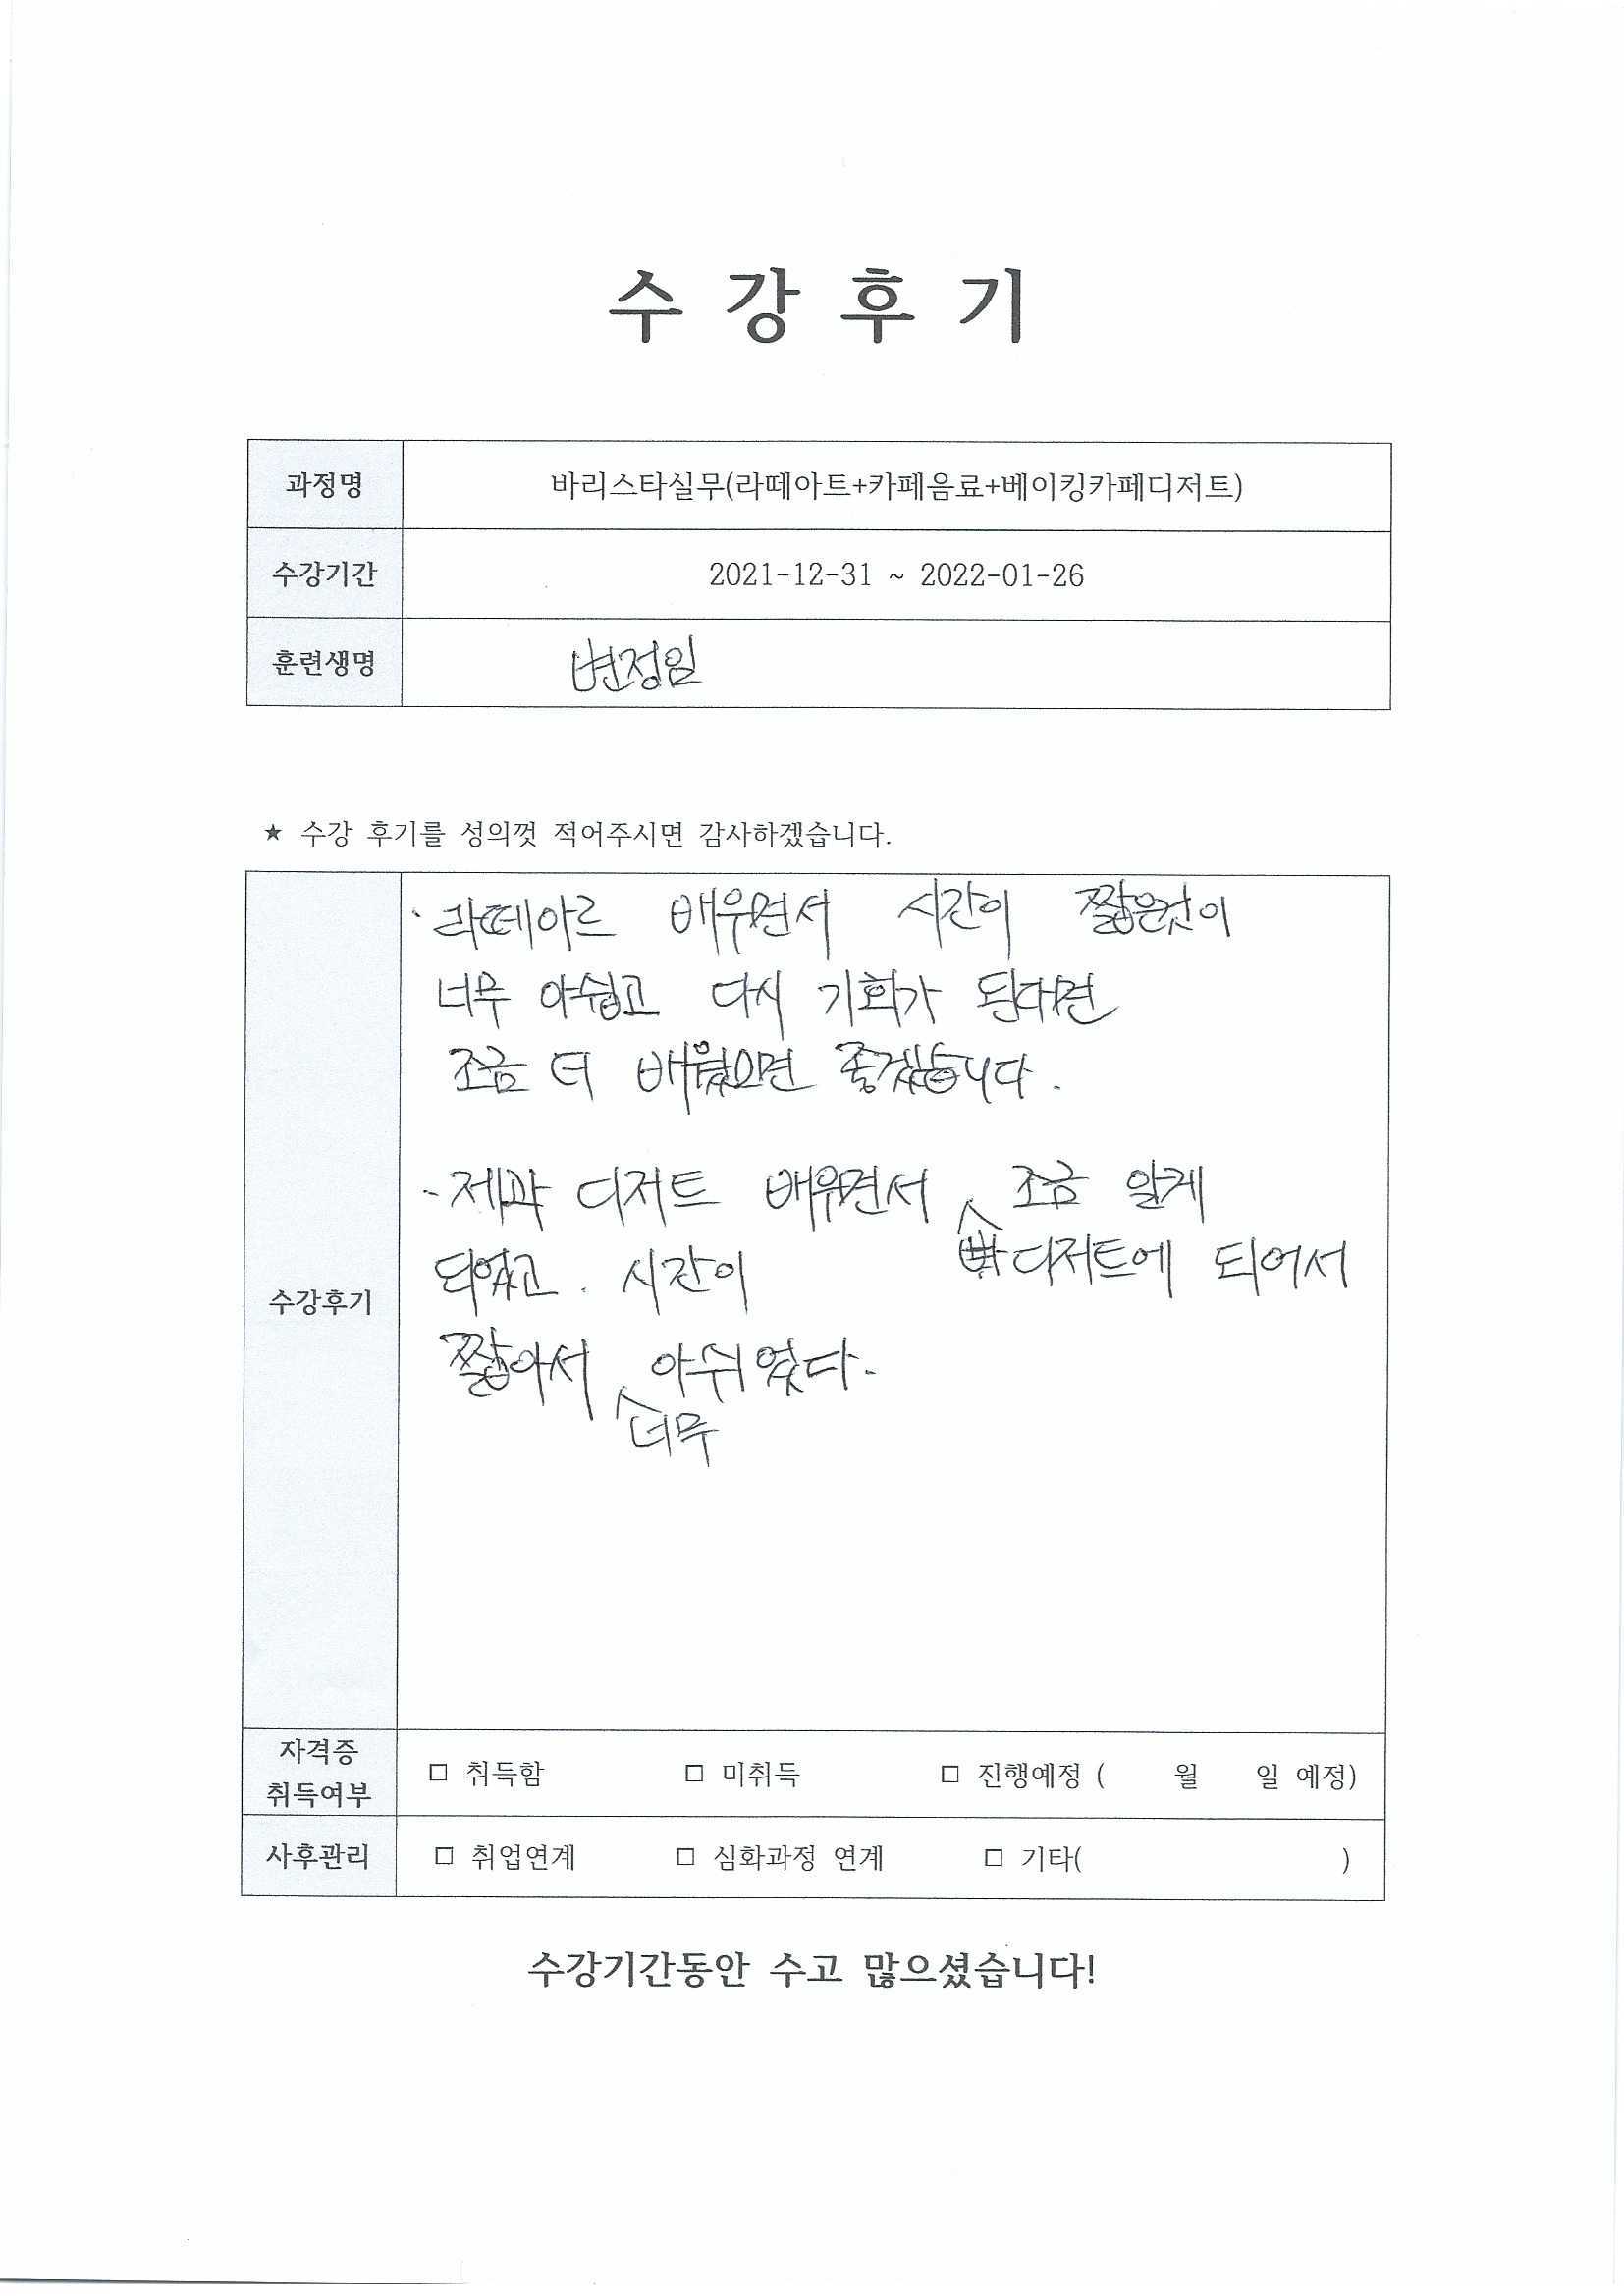 수 강 후 기
과정명 바리스타실무(라떼아트+카페음료+베이킹카페디저트)
수강기간 2021-12-31 ~ 2022-01-26
훈련생명 변정임
★ 수강 후기를 성의껏 적어주시면 감사하겠습니다.
수강후기
· 라떼아르 배우면서 시간이 짧은것이
너무 아쉽고 다시 기회가 된다면
조금 더 배웠으면 좋겠습니다.
- 제과 디저트 배우면서 조금 알게
되었고. 시간이 디저트에 되어서
짧아서 아쉬웠다.
너무
자격증
취득여부 □ 취득함 □ 미취득 □ 진행예정 ( 월 일 예정)
사후관리 □ 취업연계 □ 심화과정 연계 □ 기타( )
수강기간동안 수고 많으셨습니다!